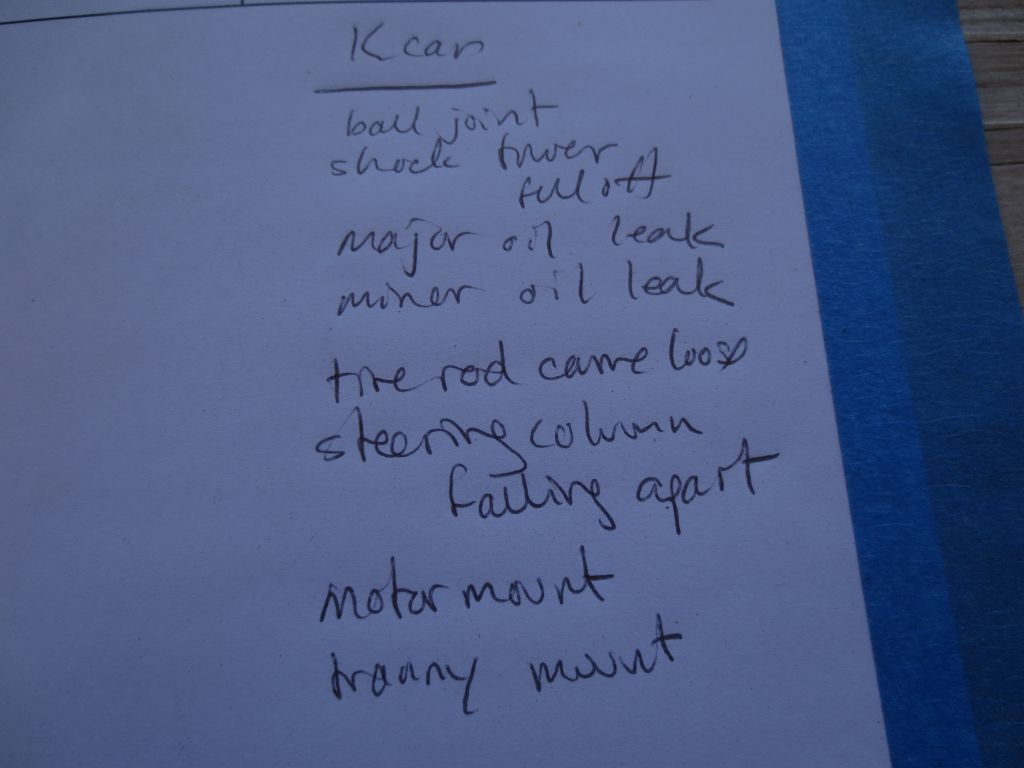 K car
ball joint
shock tower
fell off
major oil leak
minor oil leak
tire rod came loose
steering column
falling apart
motor mount
tranny mount